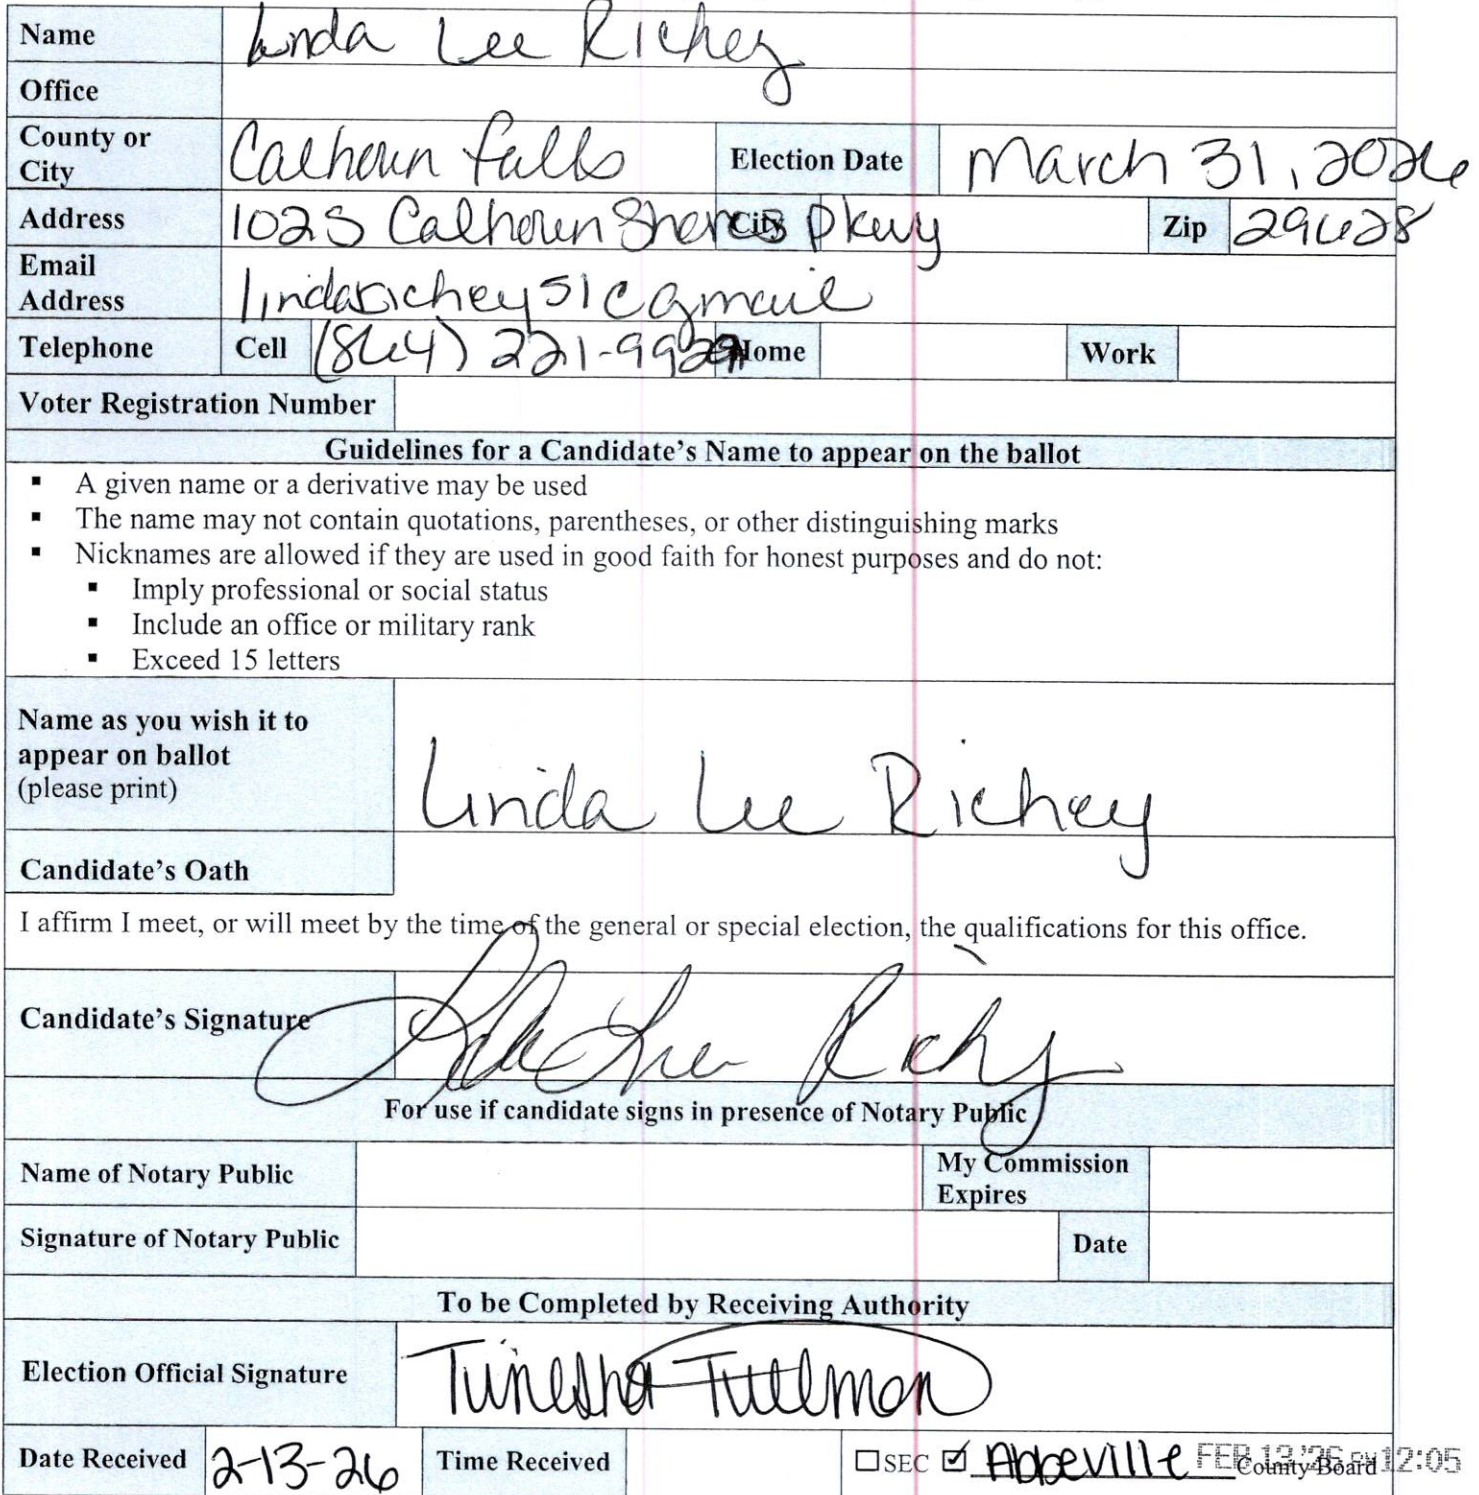 Name Linda Lee Richey
Office
County or City Calhoun Falls Election Date March 31, 2026
Address 1025 Calhoun Shores Pkwy City Zip 29628
Email Address lindarichey51@gmail
Telephone Cell (864) 221-9929 Home Work
Voter Registration Number
Guidelines for a Candidate's Name to appear on the ballot
▪ A given name or a derivative may be used
▪ The name may not contain quotations, parentheses, or other distinguishing marks
▪ Nicknames are allowed if they are used in good faith for honest purposes and do not:
▪ Imply professional or social status
▪ Include an office or military rank
▪ Exceed 15 letters
Name as you wish it to
appear on ballot
(please print) Linda Lee Richey
Candidate's Oath
I affirm I meet, or will meet by the time of the general or special election, the qualifications for this office.
Candidate's Signature Linda Lee Richey
For use if candidate signs in presence of Notary Public
Name of Notary Public My Commission Expires
Signature of Notary Public Date
To be Completed by Receiving Authority
Election Official Signature Tunesha
Date Received 2-13-26 Time Received ☐ SEC ☑ Abbeville County Board FEB 13 '26 PM 12:05